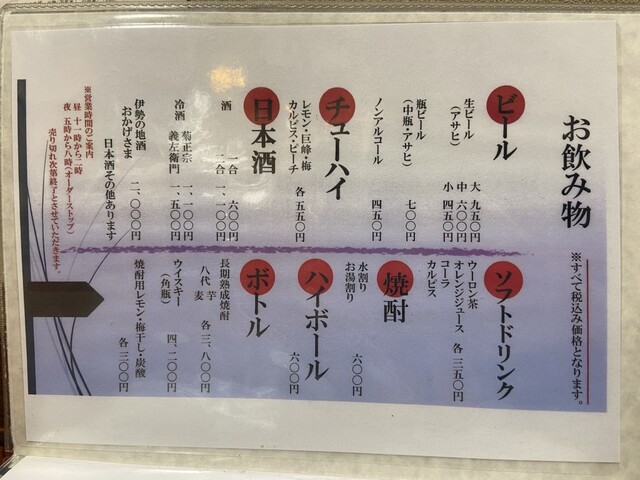 お飲み物
※すべて税込み価格となります。
ビール
生ビール
（アサヒ）
大 九五〇円
中 六〇〇円
小 四五〇円
瓶ビール
（中瓶・アサヒ）
七〇〇円
ノンアルコール
四五〇円
チューハイ
レモン・巨峰・梅
カルピス・ピーチ
各 五五〇円
日本酒
酒
一合 六〇〇円
二合 一、一〇〇円
冷酒
菊正宗 一、一〇〇円
義左衛門 一、五〇〇円
伊勢の地酒
おかげさま 二、〇〇〇円
日本酒その他あります
※営業時間のご案内
昼 十一時から二時
夜 五時から八時（オーダーストップ）
売り切れ次第終了とさせていただきます。
ソフトドリンク
ウーロン茶
オレンジジュース
コーラ
カルピス
各 三五〇円
焼酎
水割り
お湯割り
六〇〇円
ハイボール
六〇〇円
ボトル
長期熟成焼酎
八代 芋
麦
各 三、八〇〇円
ウイスキー
（角瓶）
四、二〇〇円
焼酎用レモン・梅干し・炭酸
各 三〇〇円